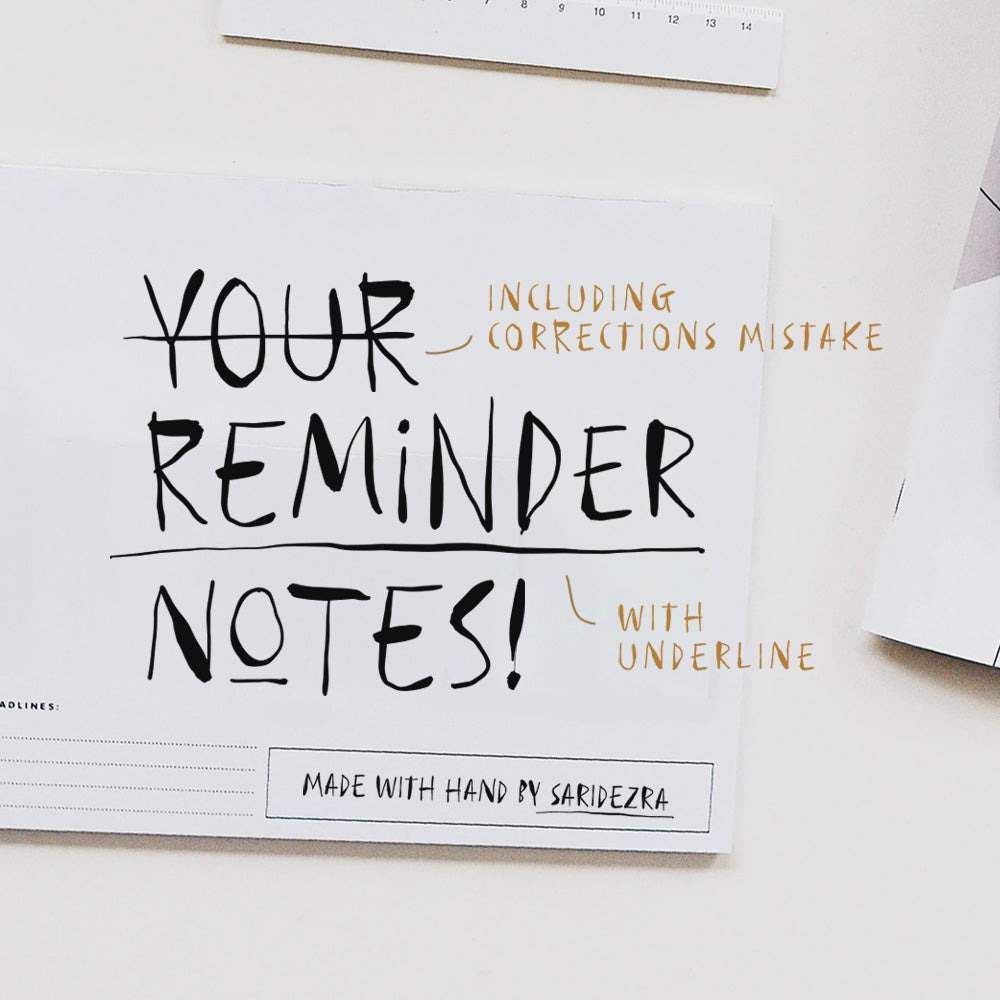 7 8 9 10 11 12 13 14
YOUR
INCLUDING
CORRECTIONS MISTAKE
REMiNDER
NOTES!
WITH
UNDERLINE
ADLINES:
MADE WITH HAND BY SARIDEZRA